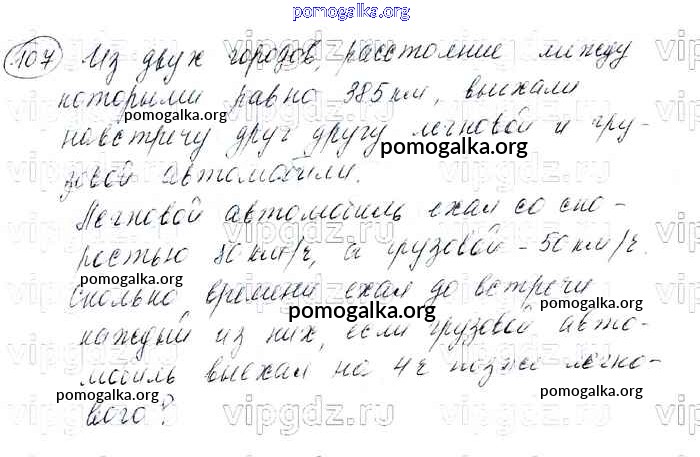 pomogalka.org
107 Из двух городов, расстояние между
которыми равно 385 км, выехали
навстречу друг другу легковой и гру-
зовой автомобили.
Легковой автомобиль ехал со ско-
ростью 80 км/ч, а грузовой - 50 км/ч.
Сколько времени ехал до встречи
каждый из них, если грузовой авто-
мобиль выехал на 4 ч позже легко-
вого?
pomogalka.org
pomogalka.org
pomogalka.org
pomogalka.org
pomogalka.org
pomogalka.org
pomogalka.org
vipgdz.ru
vipgdz.ru
vipgdz.ru